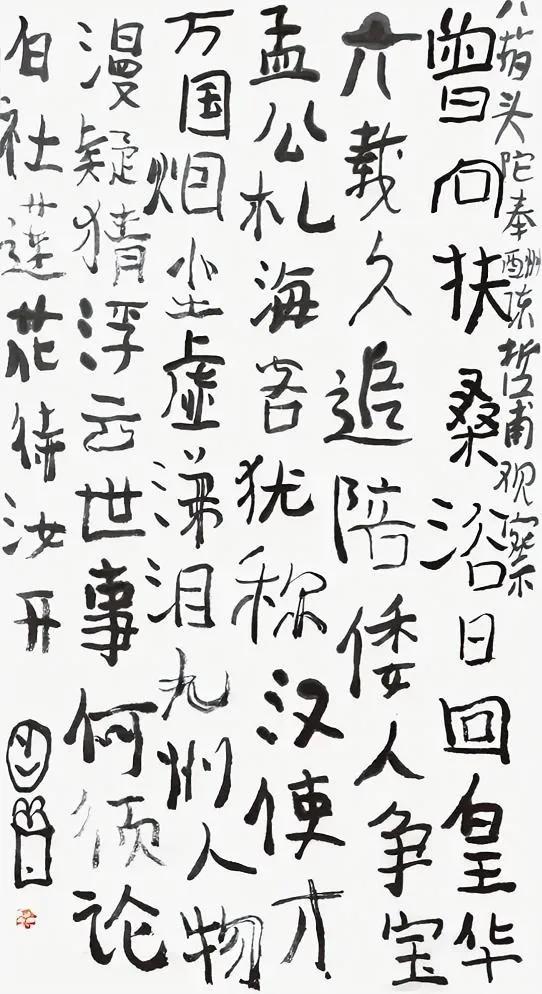 八指头陀奉酬陈哲甫观察
曾向扶桑浴日回皇华
六载久追陪倭人争宝
孟公札海客犹称汉使才
万国烟尘虚涕泪九州人物
漫疑猜浮云世事何须论
白社莲花待汝开